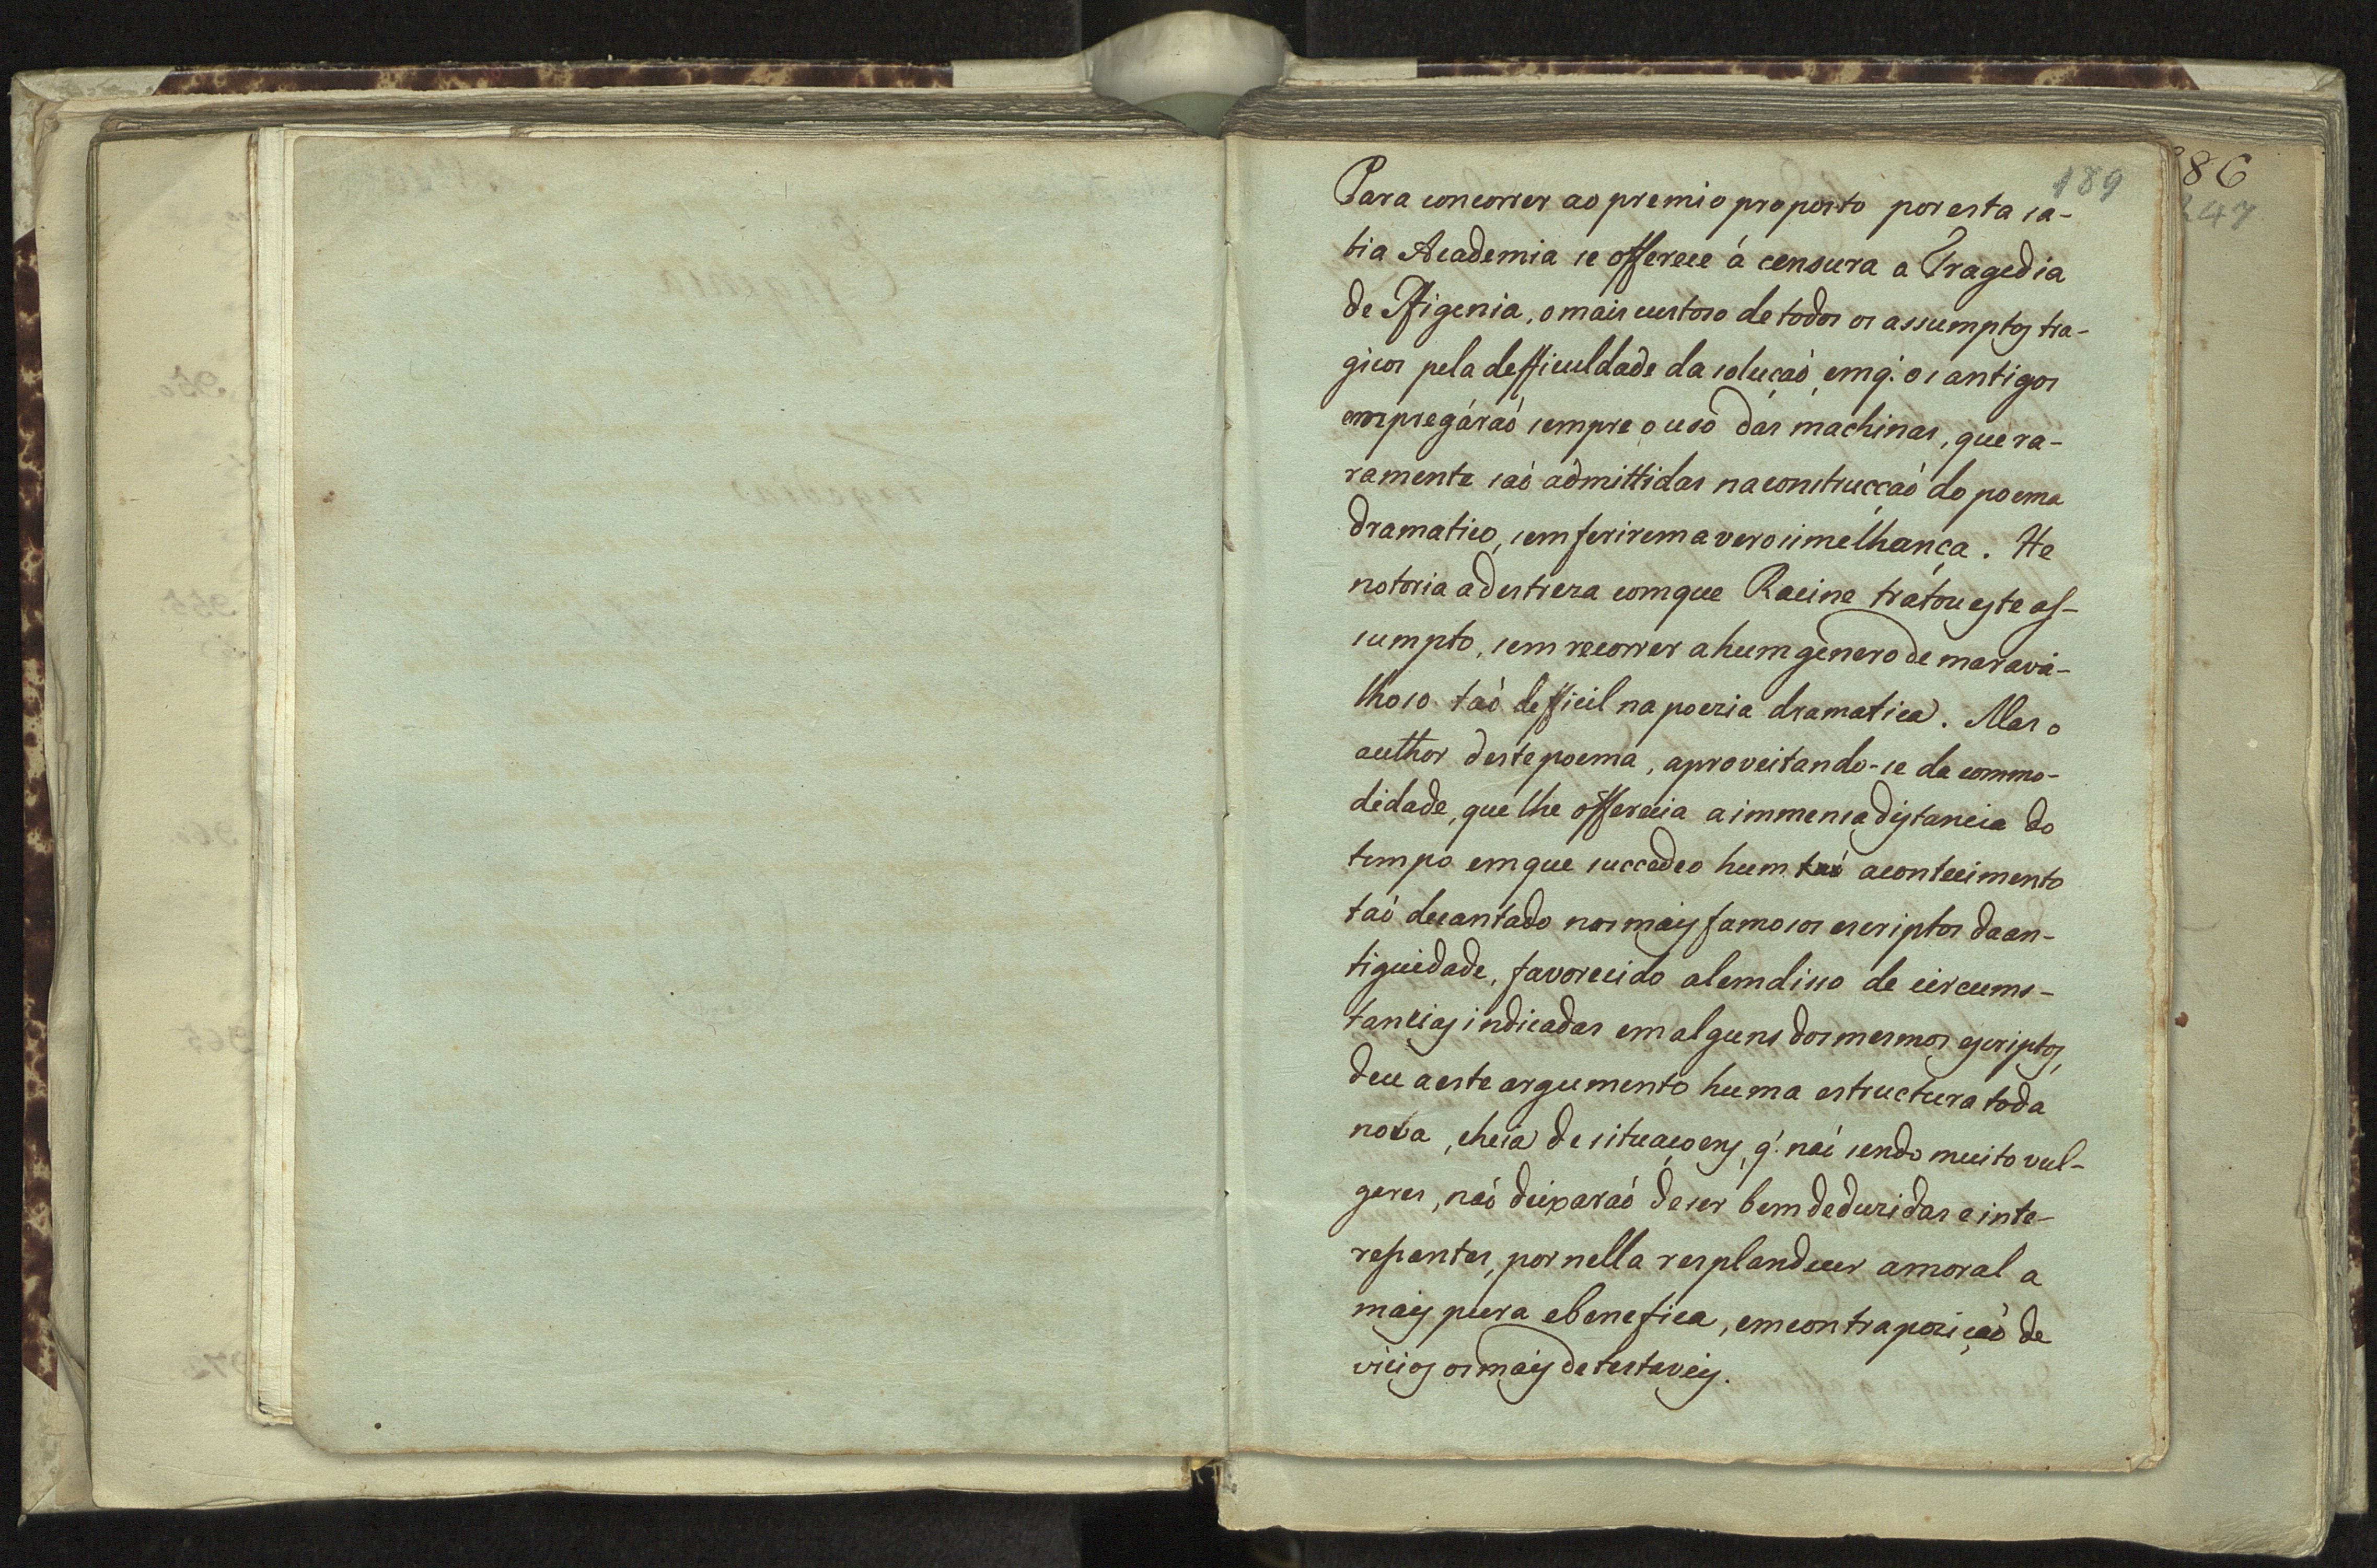 189
Para concorrer ao premio proposto por esta sa-
bia Academia se offerece á censura a Tragedia
de Ifigenia, o mais custoso de todos os assumptos tra-
gicos pela defficuldade da soluçaó, em q̃. os antigos
empregáraó sempre o uso das machinas, que ra-
ramente saó admittidas na construcçaó do poema
dramatico, sem ferirem a verosimelhança. He
notoria a destreza com que Racine tratou este as-
sumpto, sem recorrer a hum genero de maravi-
lhoso taó defficil na poezia dramatica. Mas o
author deste poema, aproveitando-se da commo-
didade, que lhe offerecia a immensa distancia do
tempo em que succedeo hum taó acontecimento
taó decantado nos mais famosos escriptos da an-
tiguidade, favorecido alem disso de circums-
tancias indicadas em alguns dos mesmos escriptos,
deu a este argumento huma estructura toda
nova, cheia de situaçoens, q̃. naó sendo muito vul-
gares, naó deixaraó de ser bem deduzidas e inte-
ressantes, por nella resplandecer a moral a
mais pura e benefica, em contrapoziçaó de
vicios os mais detestaveis.
86
247